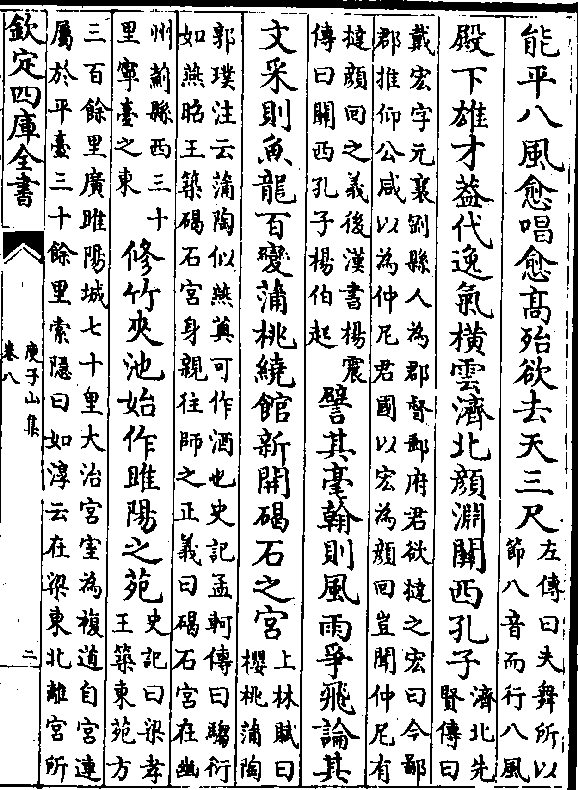 能平八風愈唱愈高殆欲去天三尺左傳曰夫舞所以
節八音而行八風
殿下雄才蓋代逸氣橫雲濟北顔淵關西孔子濟北先
賢傳曰
戴宏字元襄剛縣人為郡督郵府君欲撻之宏曰今鄙
郡推仰公咸以為仲尼君國以宏為顔回豈聞仲尼有
撻顔回之義後漢書楊震
傳曰關西孔子楊伯起
譬其毫翰則風雨爭飛論其
文采則魚龍百變蒲桃繞館新開碣石之宮上林賦曰
櫻桃蒲陶
郭璞注云蒲陶似燕薁可作酒也史記孟軻傳曰騶衍
如燕昭王築碣石宮身親往師之正義曰碣石宮在幽
州薊縣西三十
里寧臺之東
修竹夾池始作睢陽之苑史記曰梁孝
王築東苑方
三百餘里廣睢陽城七十里大治宮室為複道自宮連
屬於平臺三十餘里索隱曰如淳云在梁東北離宮所
欽定四庫全書
庾子山集
卷八
二